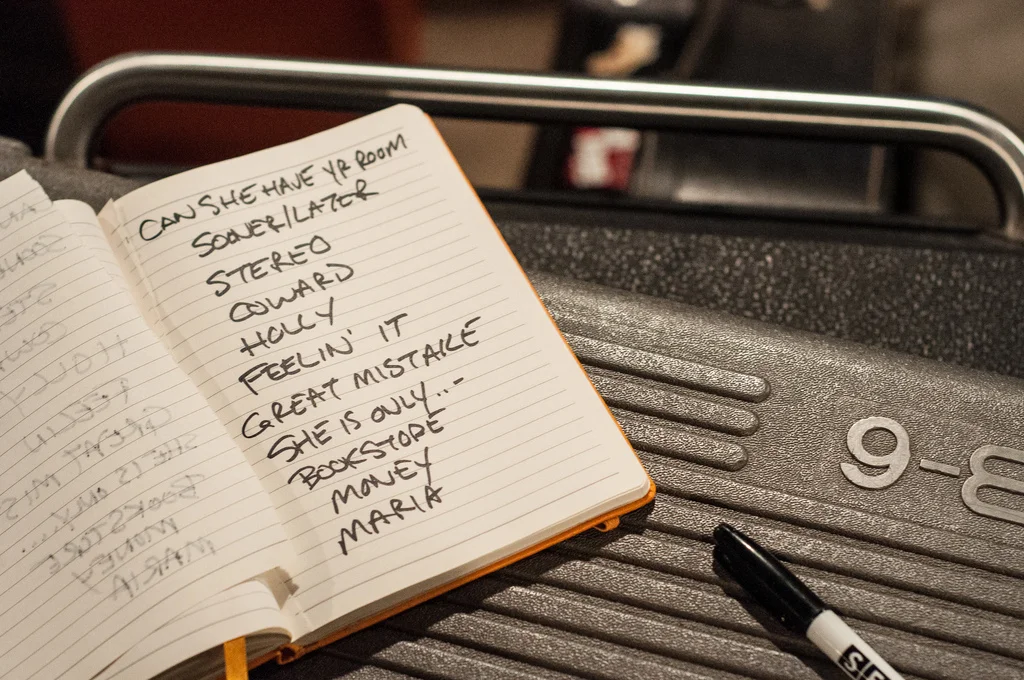 CAN SHE HAVE YR ROOM
SOONER/LATER
STEREO
COWARD
HOLLY
FEELIN' IT
GREAT MISTAKE
SHE IS ONLY...
BOOKSTORE
MONEY
MARIA
9-8